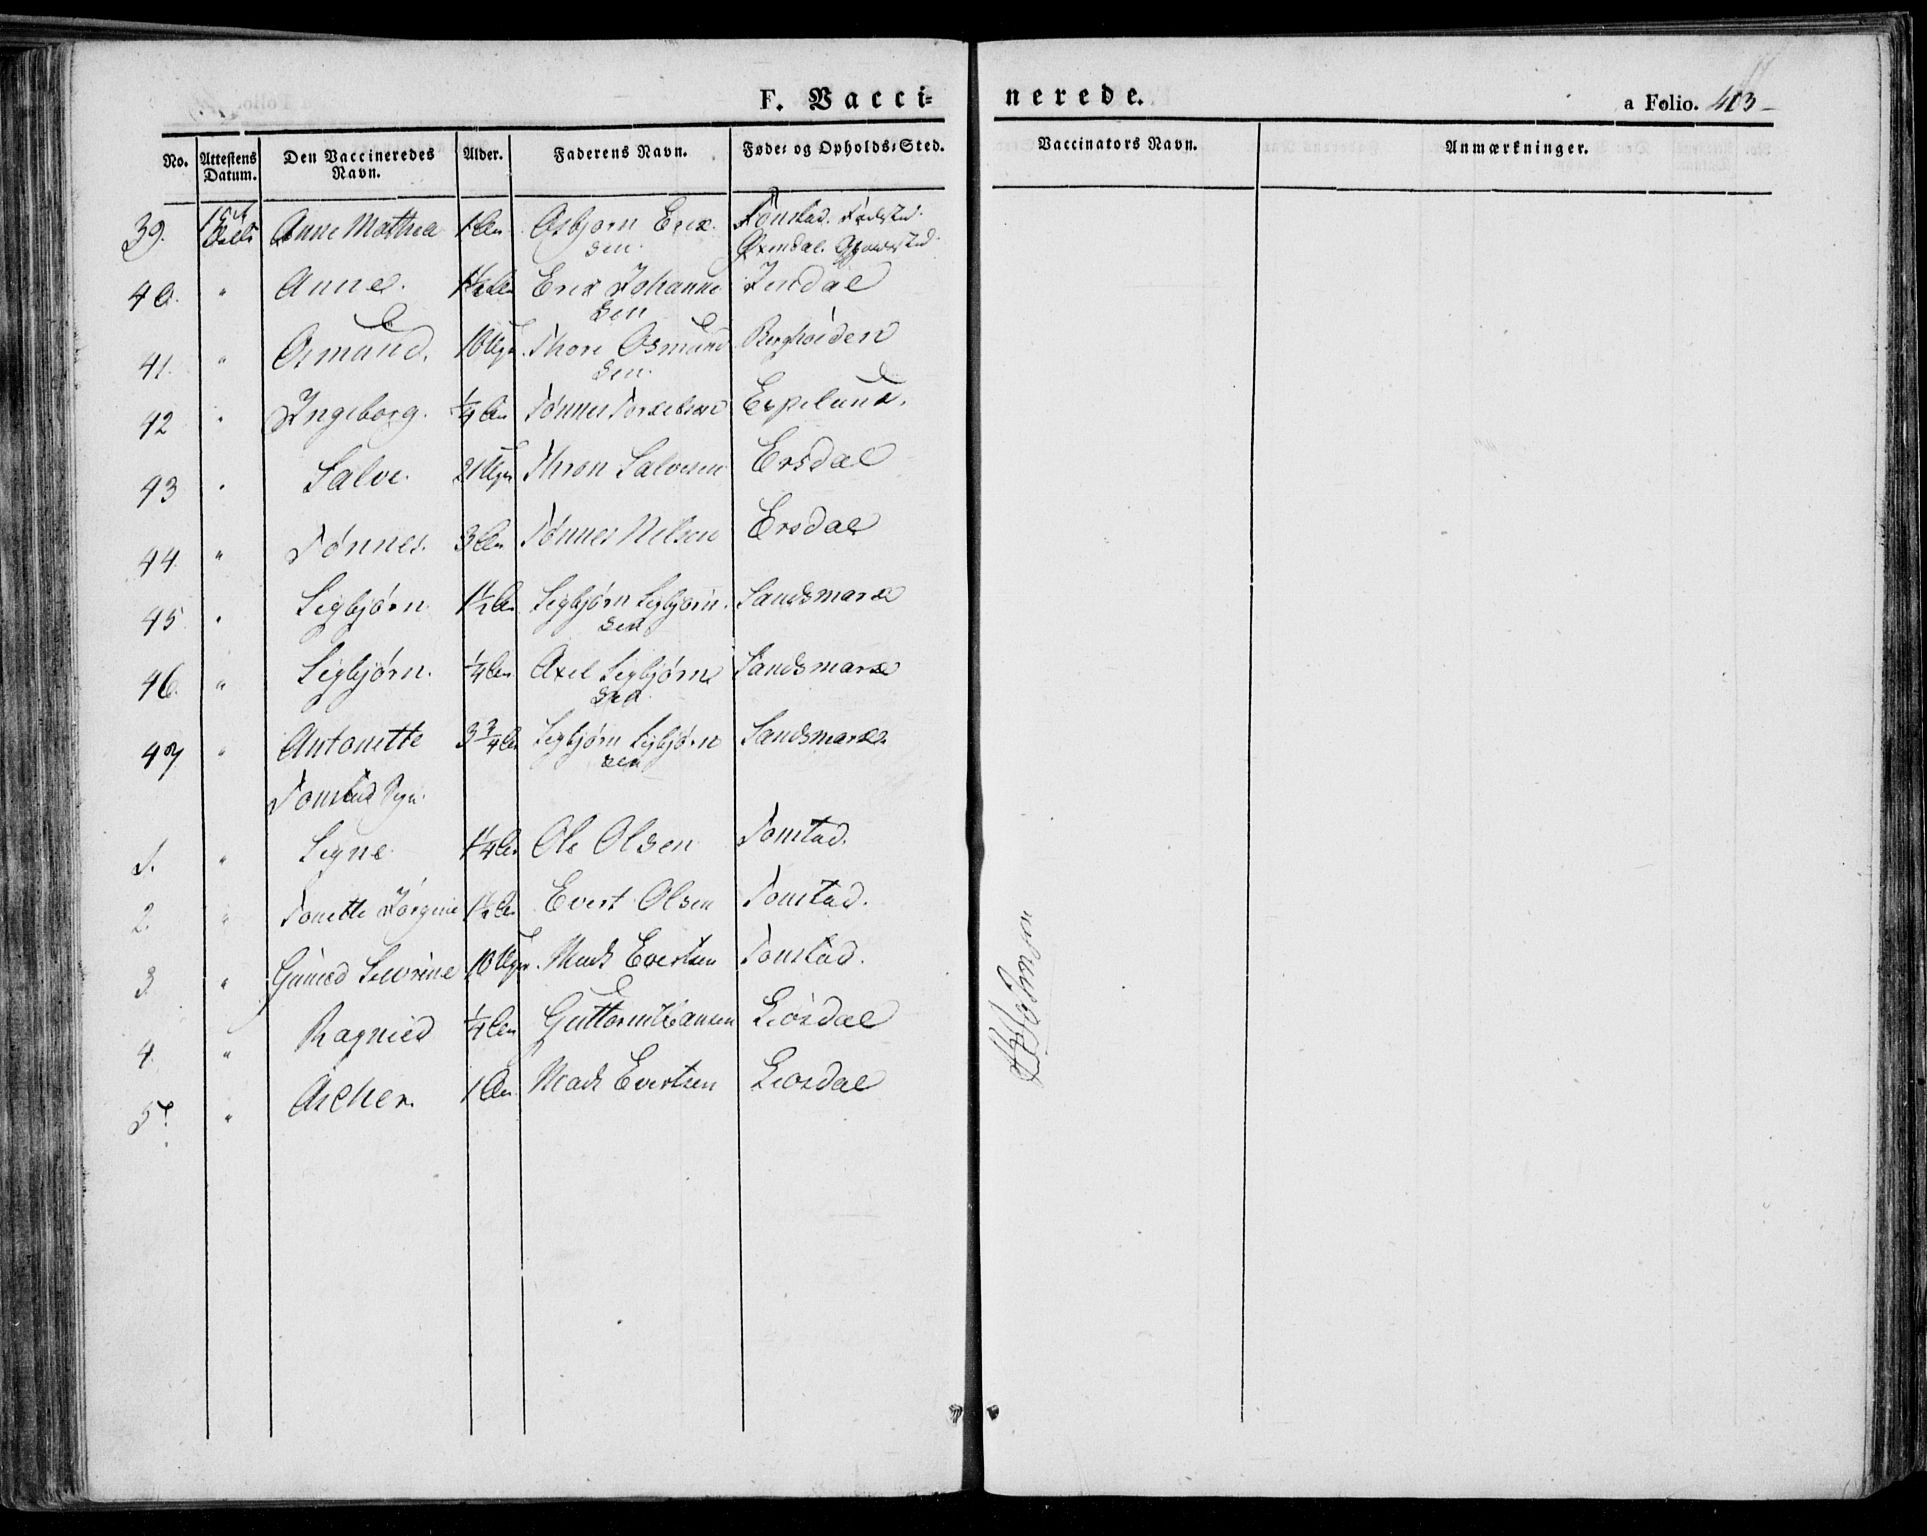 F. Vacci= nerede.
a Folio. 403
No. Attestens Datum. Den Vaccineredes Navn. Alder. Faderens Navn. Føde- og Opholds-Sted. Vaccinators Navn. Anmærkninger.
39. Anne Mathea 1 Aar Asbjørn Erik
sen Tonstad. Fødested.
Øxendal. Opholdsted.
40. " Anne. Erik Johanne Josdal
sen
41. " Osmund. 10 Uger Thore Osmund Berghøiden
sen.
42 " Ingeborg. ¼ Aar Tønnes Torkelsen Espelund.
43 " Salve. 21 Uger Thron Salvesen Ersdal
44 " Tønnes. 3 Aar Tønnes Nilsen Ersdal
45 " Sigbjørn 1½ Aar Sigbjørn Sigbjørn Sandsmark
sen
46. " Sigbjørn. ¼ Aar Axel Sigbjørn Sandsmark
sen.
47 " Antonette 3¾ Aar Sigbjørn Sigbjørn Sandsmark.
sen
Tonstad Sogn.
1. " Signe 1¼ Aar Ole Olsen Tonstad.
2. " Tonette Jørgine 1½ Aar Evert Olsen Tonstad.
3 " Gunild Severine 10 Uger Mads Evertsen Tonstad.
4. " Ragnild ¼ Aar Guttorm Hansen Liosdal
5. " Aicher. 1 Aar Mads Evertsen Liosdal